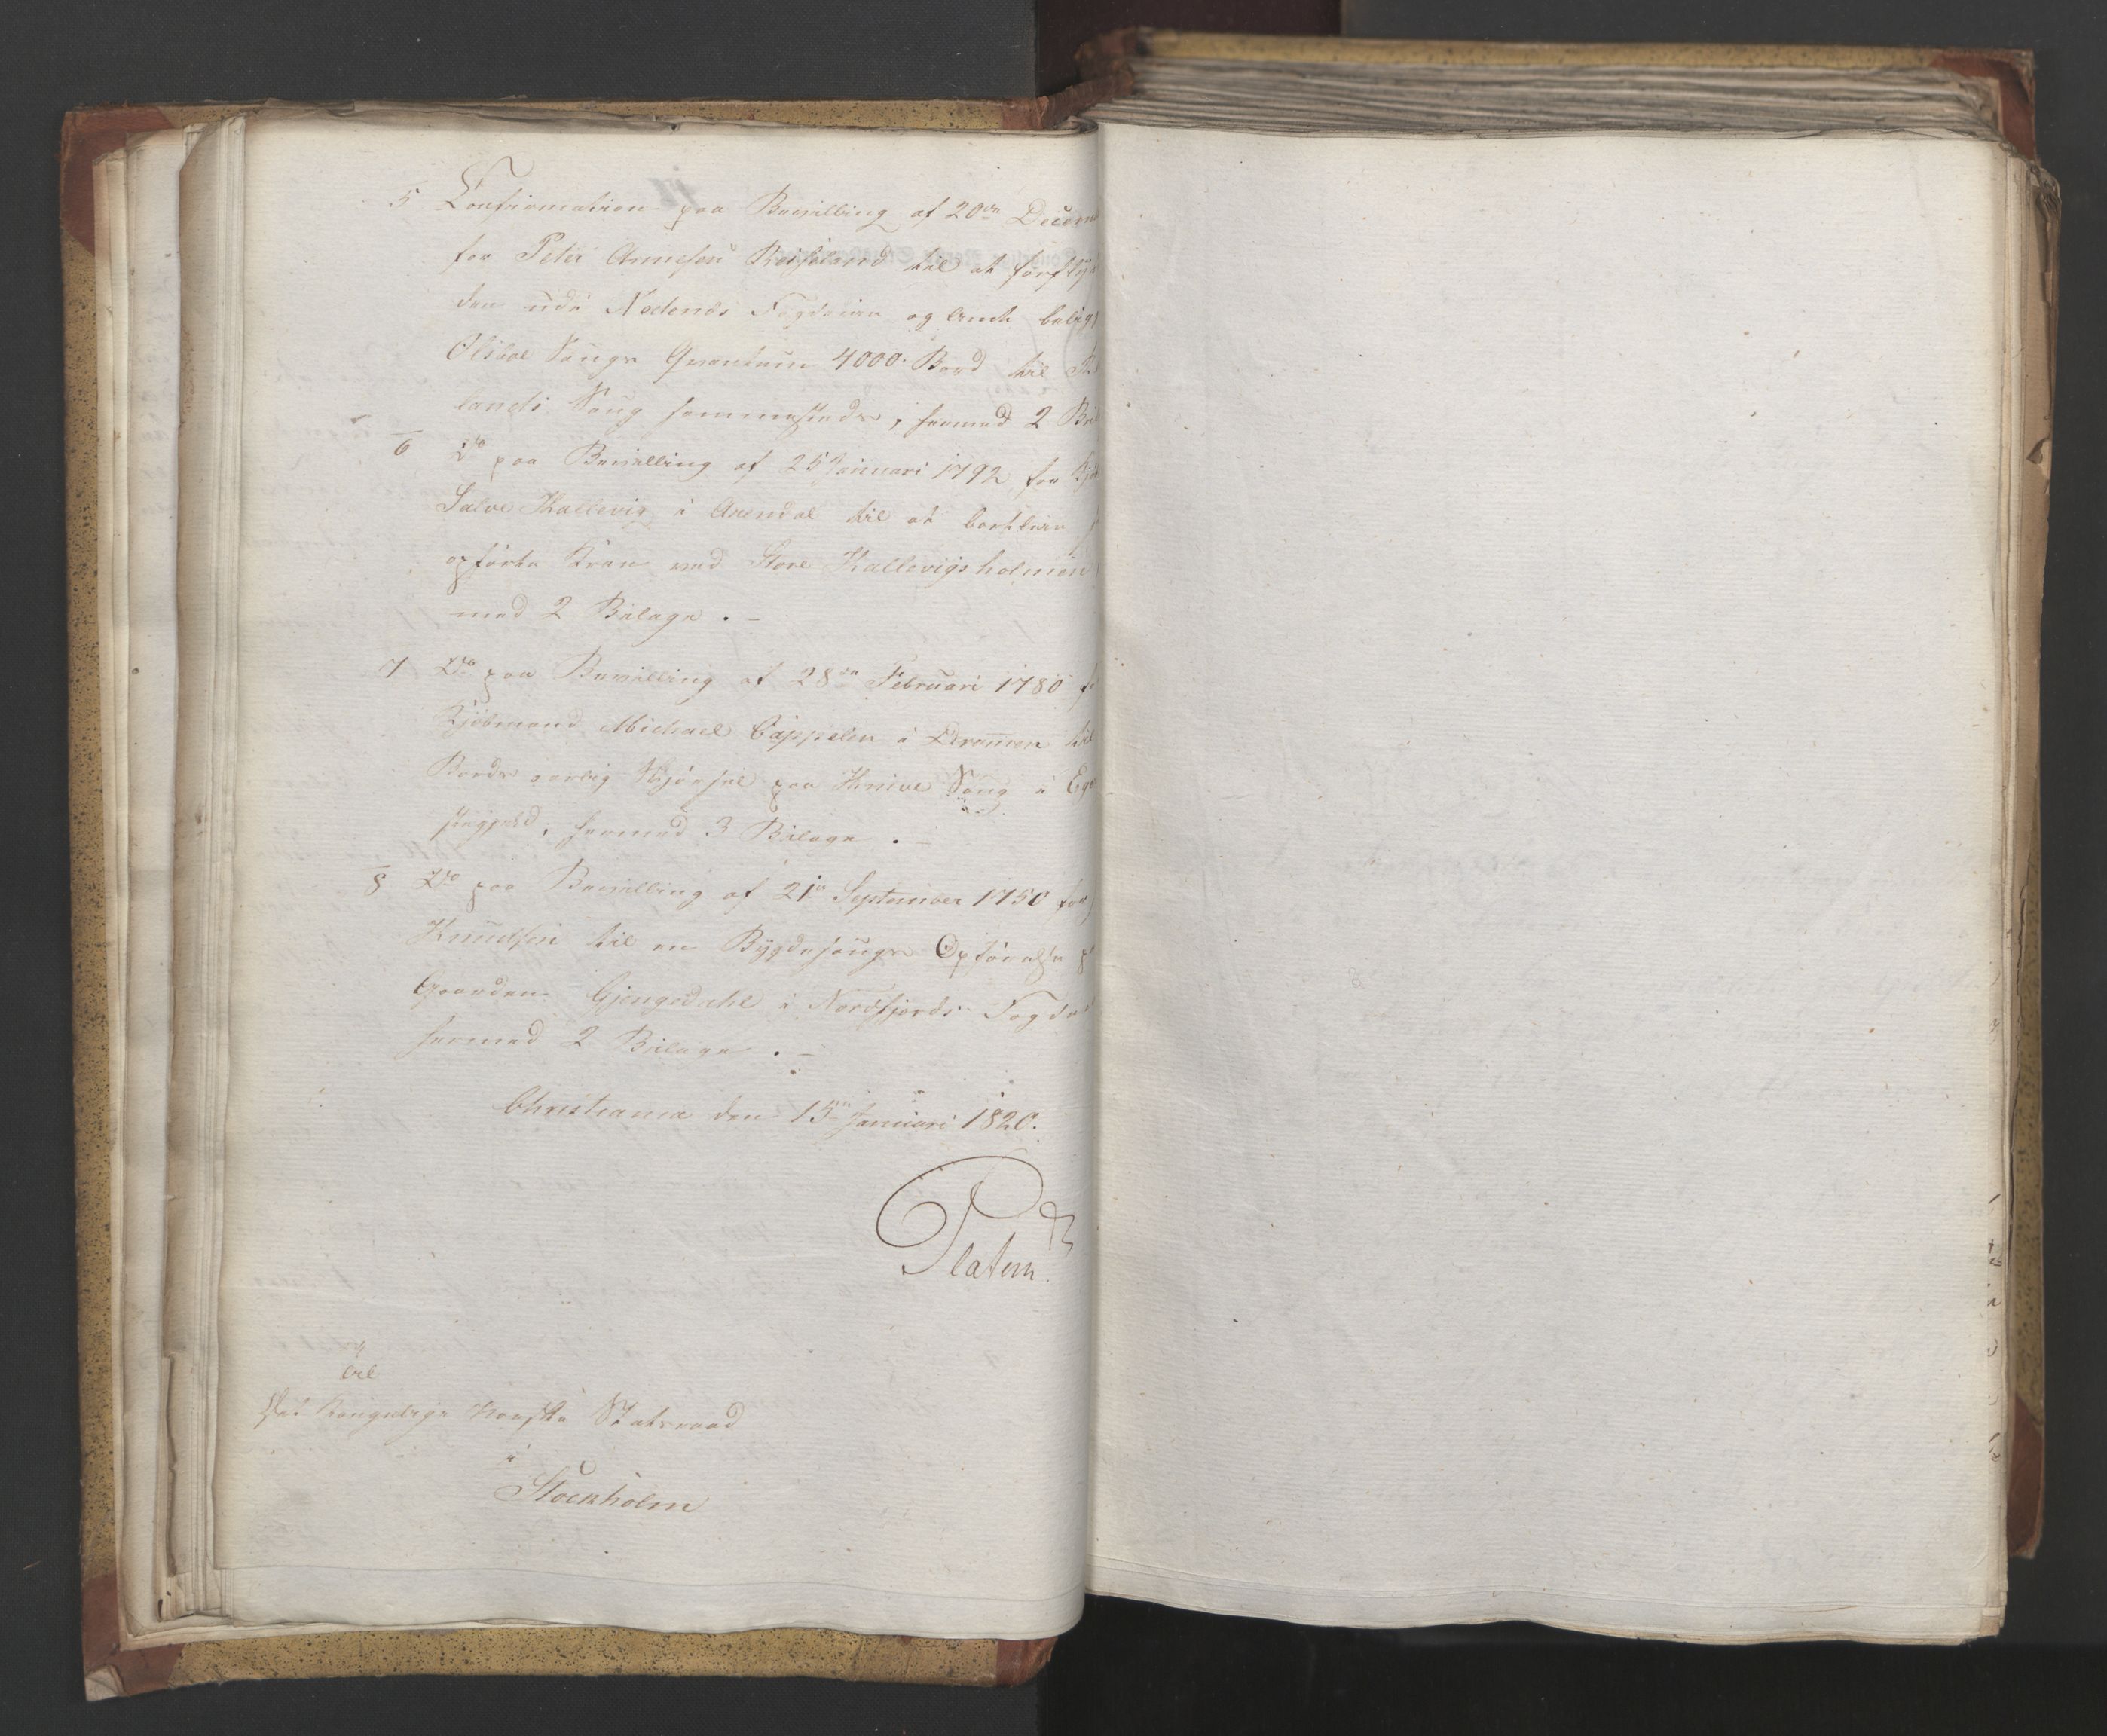 5 Confirmation paa Bevilling af 20de Decem
for Peter Annesen Reisland til at forfly
den udi Nedenes Fogderie og Amt belig
Olsboe Saugs Qvantum 4000 Bord til
lands Saug sammesteds, hermed 2 Bil
6 Do paa Bevilling af 25 Januari 1792 for Kjø
Salve Kallevig i Arendal til at
opførte Kran ved Store Kallevigsholmen
med 2 Bilage. -
7 Do paa Bevilling af 28de Februari 1780 fo
Kjöbmand Michael Cappelen i Drammen til
Bords aarlig Skjørsel paa Knive Saug i Ege
hermed 3 Bilage.
8 Do paa Bevilling af 21de September 1750 for
Knudsen til en Bygdesaugs Opførelse p
Gaarden Gjengedahl i Nordfjords Fogde
hermed 2 Bilage. -
Christiania den 15de Januari 1820.
Platen
Til
Det Kongelige Norske Statsraad
i
Stockholm